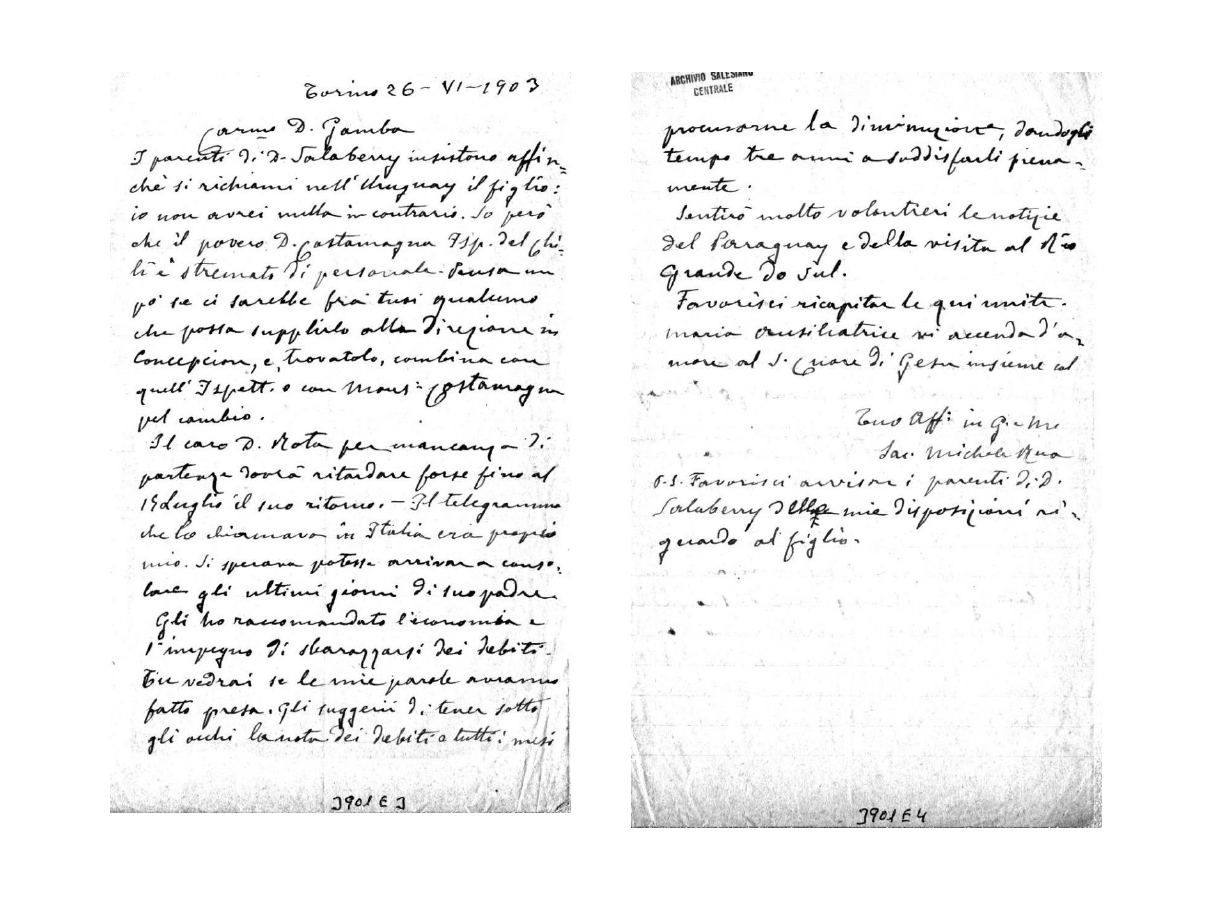 Torino 26 - VI - 1903
Carmo D. Gamba
I parenti di D. Salaberry insistono affin=
chè si richiami nell'Uruguay il figlio:
io non avrei nulla in contrario. So però
che il povero D. Costamagna Isp. del Chi-
lì è stremato di personale. Pensa un
pò se ci sarebbe fra i tuoi qualcuno
che possa supplirlo alla direzione in
Concepcion, e, trovatolo, combina con
quell' Ispett. o con Monsr Costamagna
pel cambio.
Il caro D. Rota per mancanza di
partenze dovrà ritardare forse fino al
15 Luglio il suo ritorno. - Il telegramma
che lo chiamava in Italia era proprio
mio. Si sperava potesse arrivar a conso-
lare gli ultimi giorni di suo padre.
Gli ho raccomandato l'economia e
l'impegno di sbarazzarsi dei debiti.
Tu vedrai se le mie parole avranno
fatto presa. Gli suggerii di tener sotto
gli occhi la nota dei debiti e tutti i mesi
J901 E 3
ARCHIVIO SALESIANO
CENTRALE
procurarne la diminuzione, dandogli
tempo tre anni a soddisfarli piena-
mente.
Sentirò molto volontieri le notizie
del Paraguay e della visita al Rio
Grande do Sul.
Favorisci ricapitar le qui unite.
Maria Ausiliatrice vi accenda d'a-
more al S. Cuore di Gesu insieme al
Tuo Aff: in G. e M.
Sac. Michele Rua
P.S. Favorisci avvisar i parenti di D.
Salaberry delle mie disposizioni ri-
guardo al figlio.
J901 E 4